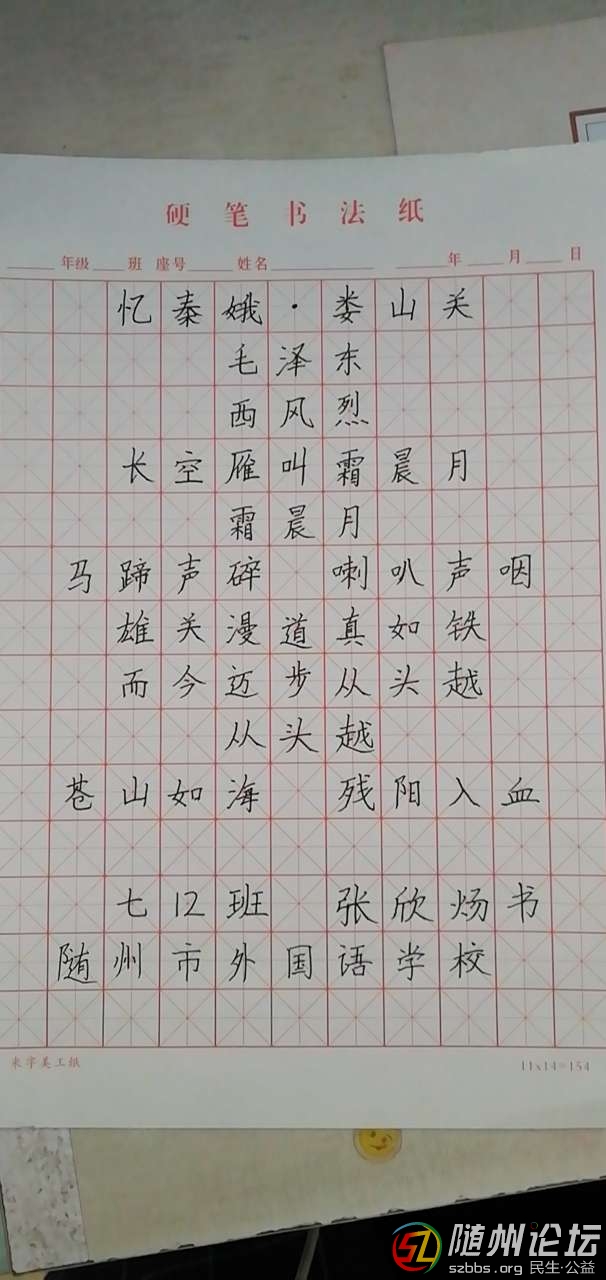 硬笔书法纸
年级 班 座号 姓名 年 月 日
忆秦娥·娄山关
毛泽东
西风烈
长空雁叫霜晨月
霜晨月
马蹄声碎 喇叭声咽
雄关漫道真如铁
而今迈步从头越
从头越
苍山如海 残阳入血
七12班 张欣炀书
随州市外国语学校
来字美工纸 11x14=154
随州论坛
szbbs.org 民生·公益